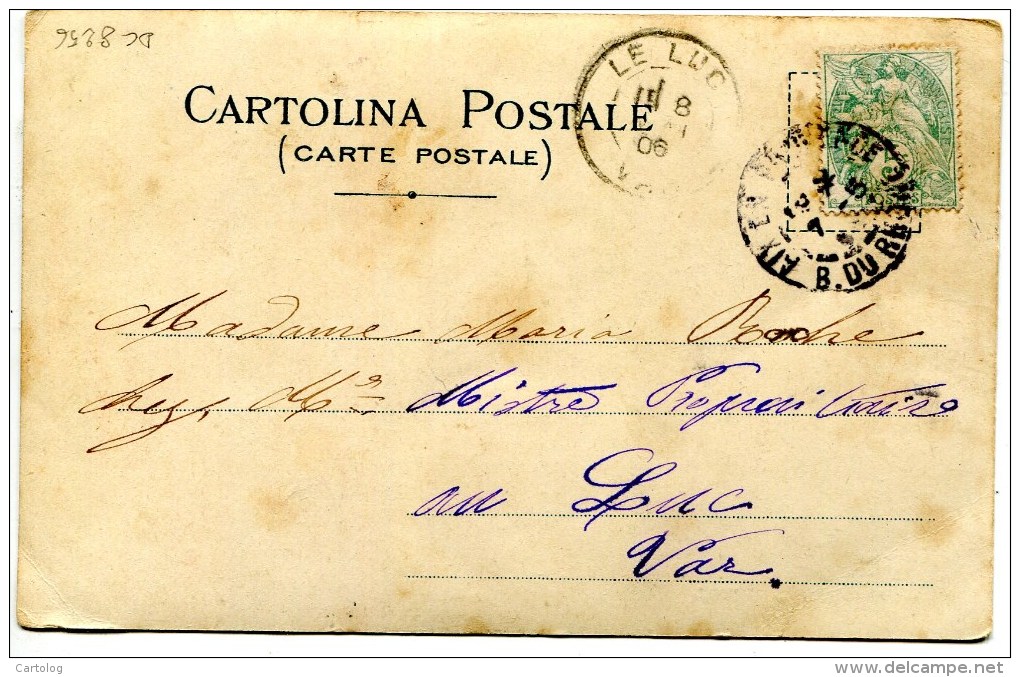 DC 8256
CARTOLINA POSTALE
(CARTE POSTALE)
LE LUC
8
06
VAR
AIX EN PROVENCE
B. DU RHONE
Madame Maria Roche
chez Mr Mistre Propriétaire
au Luc
Var.
Cartolog
www.delcampe.net